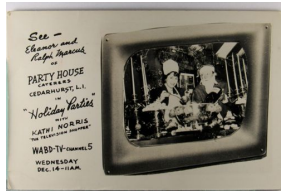 See —
Eleanor and
Ralph Marcus
OF
PARTY HOUSE
CATERERS
CEDARHURST, L.I.
IN
"Holiday Parties"
WITH
KATHI NORRIS
"THE TELEVISION SHOPPER"
WABD-TV-CHANNEL 5
WEDNESDAY
DEC. 14-11 A.M.